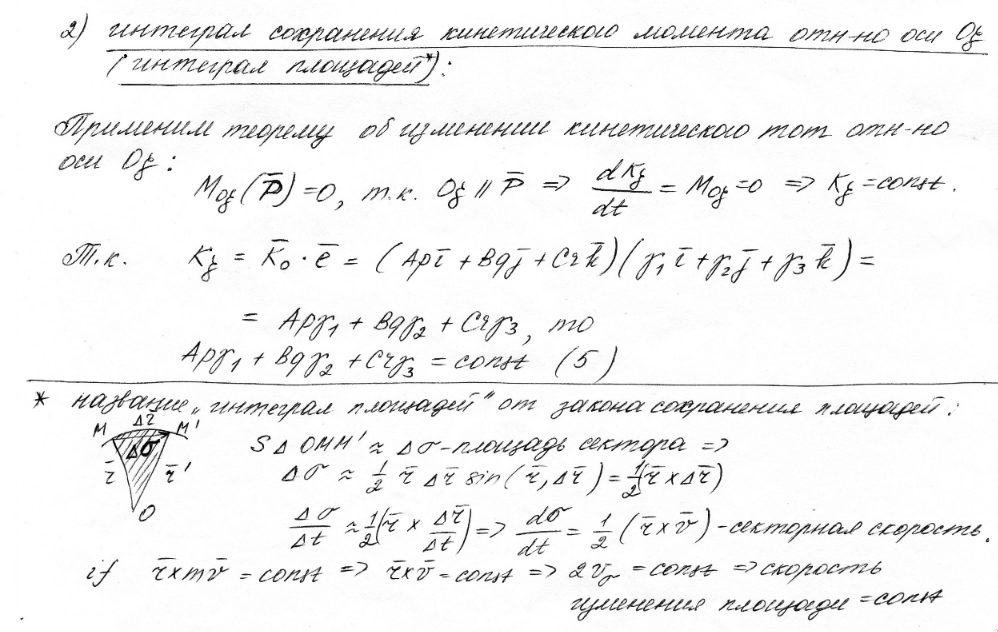 2) интеграл сохранения кинетического момента отн-но оси Oz
(интеграл площадей*):
Применим теорему об изменении кинетического мом отн-но
оси Oz:
M_{Oz}(P̄)=0, т.к. Oz ∥ P̄ => dK_z/dt = M_{Oz}=0 => K_z=const.
Т.к. K_z = K̄_0 · ē = (Apī + Bqj̄ + Crk̄)(γ_1ī + γ_2j̄ + γ_3k̄) =
= Apγ_1 + Bqγ_2 + Crγ_3, то
Apγ_1 + Bqγ_2 + Crγ_3 = const (5)
* название „интеграл площадей" от закона сохранения площадей:
M Δr̄ M'
S Δ OMM' ≈ Δσ - площадь сектора =>
r̄ Δσ r̄'
Δσ ≈ 1/2 r̄ Δr̄ sin(r̄, Δr̄) = 1/2(r̄ × Δr̄)
O
Δσ/Δt ≈ 1/2(r̄ × Δr̄/Δt) => dσ/dt = 1/2 (r̄ × v̄) - секторная скорость.
if r̄×mv̄ = const => r̄×v̄ = const => 2v_σ = const => скорость
изменения площади = const